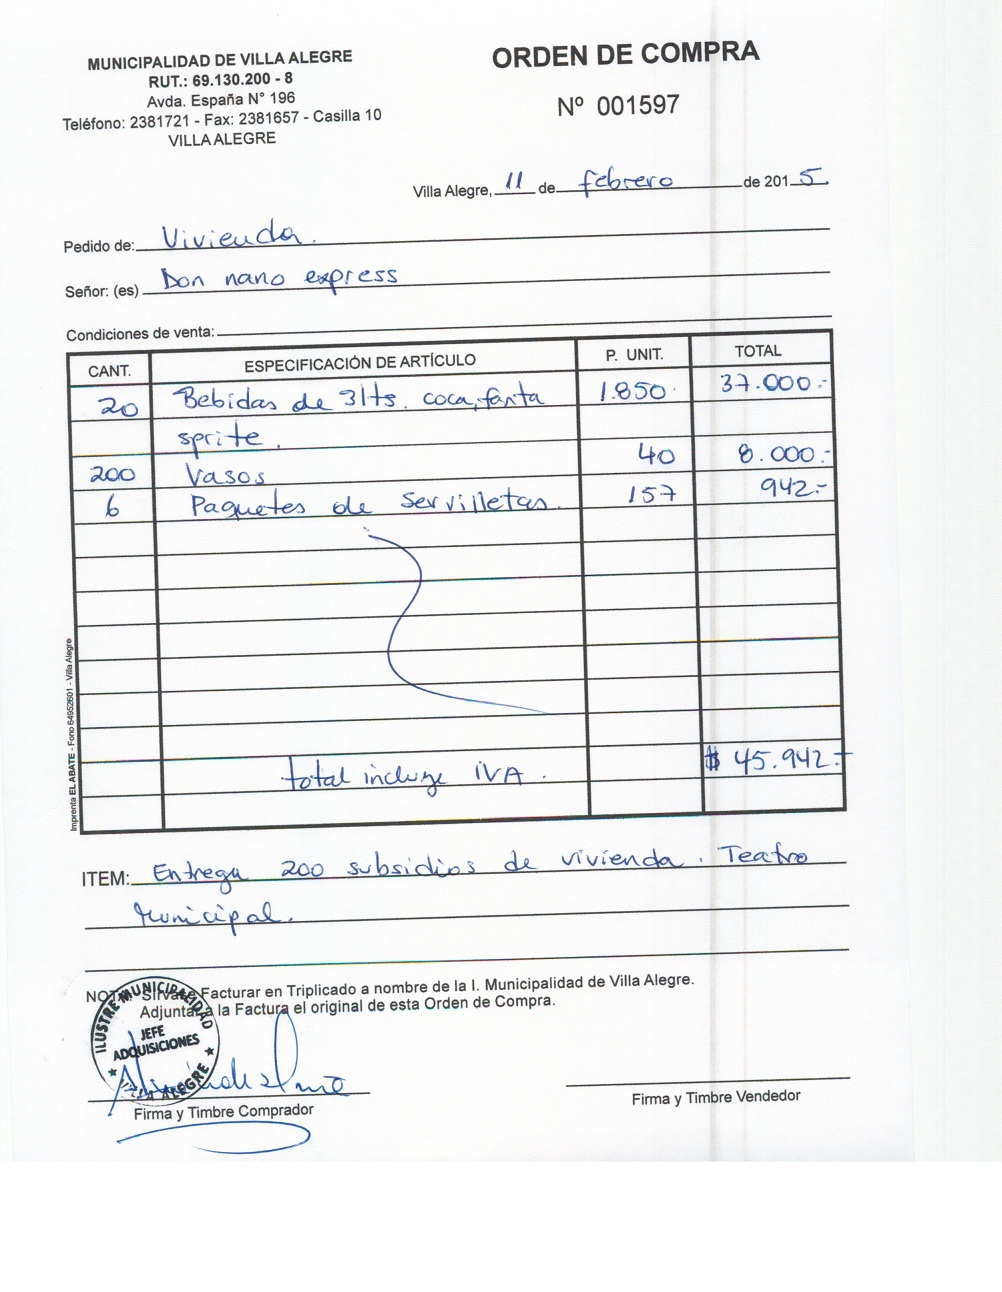 MUNICIPALIDAD DE VILLA ALEGRE
RUT.: 69.130.200 - 8
Avda. España N° 196
Teléfono: 2381721 - Fax: 2381657 - Casilla 10
VILLA ALEGRE
ORDEN DE COMPRA
Nº 001597
Villa Alegre, 11 de febrero de 2015.
Pedido de: Vivienda.
Señor: (es) Don nano express
Condiciones de venta:
CANT. ESPECIFICACIÓN DE ARTÍCULO P. UNIT. TOTAL
20 Bebidas de 3lts. coca, fanta 1.850 37.000.-
sprite.
200 Vasos 40 8.000.-
6 Paquetes de Servilletas. 157 942.-
total incluye IVA. $ 45.942.-
Imprenta EL ABATE - Fono 64952601 - Villa Alegre
ITEM: Entrega 200 subsidios de vivienda. Teatro
Municipal.
Sirvase Facturar en Triplicado a nombre de la I. Municipalidad de Villa Alegre.
Adjuntar a la Factura el original de esta Orden de Compra.
ILUSTRE MUNICIPALIDAD
JEFE
ADQUISICIONES
VILLA ALEGRE
Firma y Timbre Comprador
Firma y Timbre Vendedor